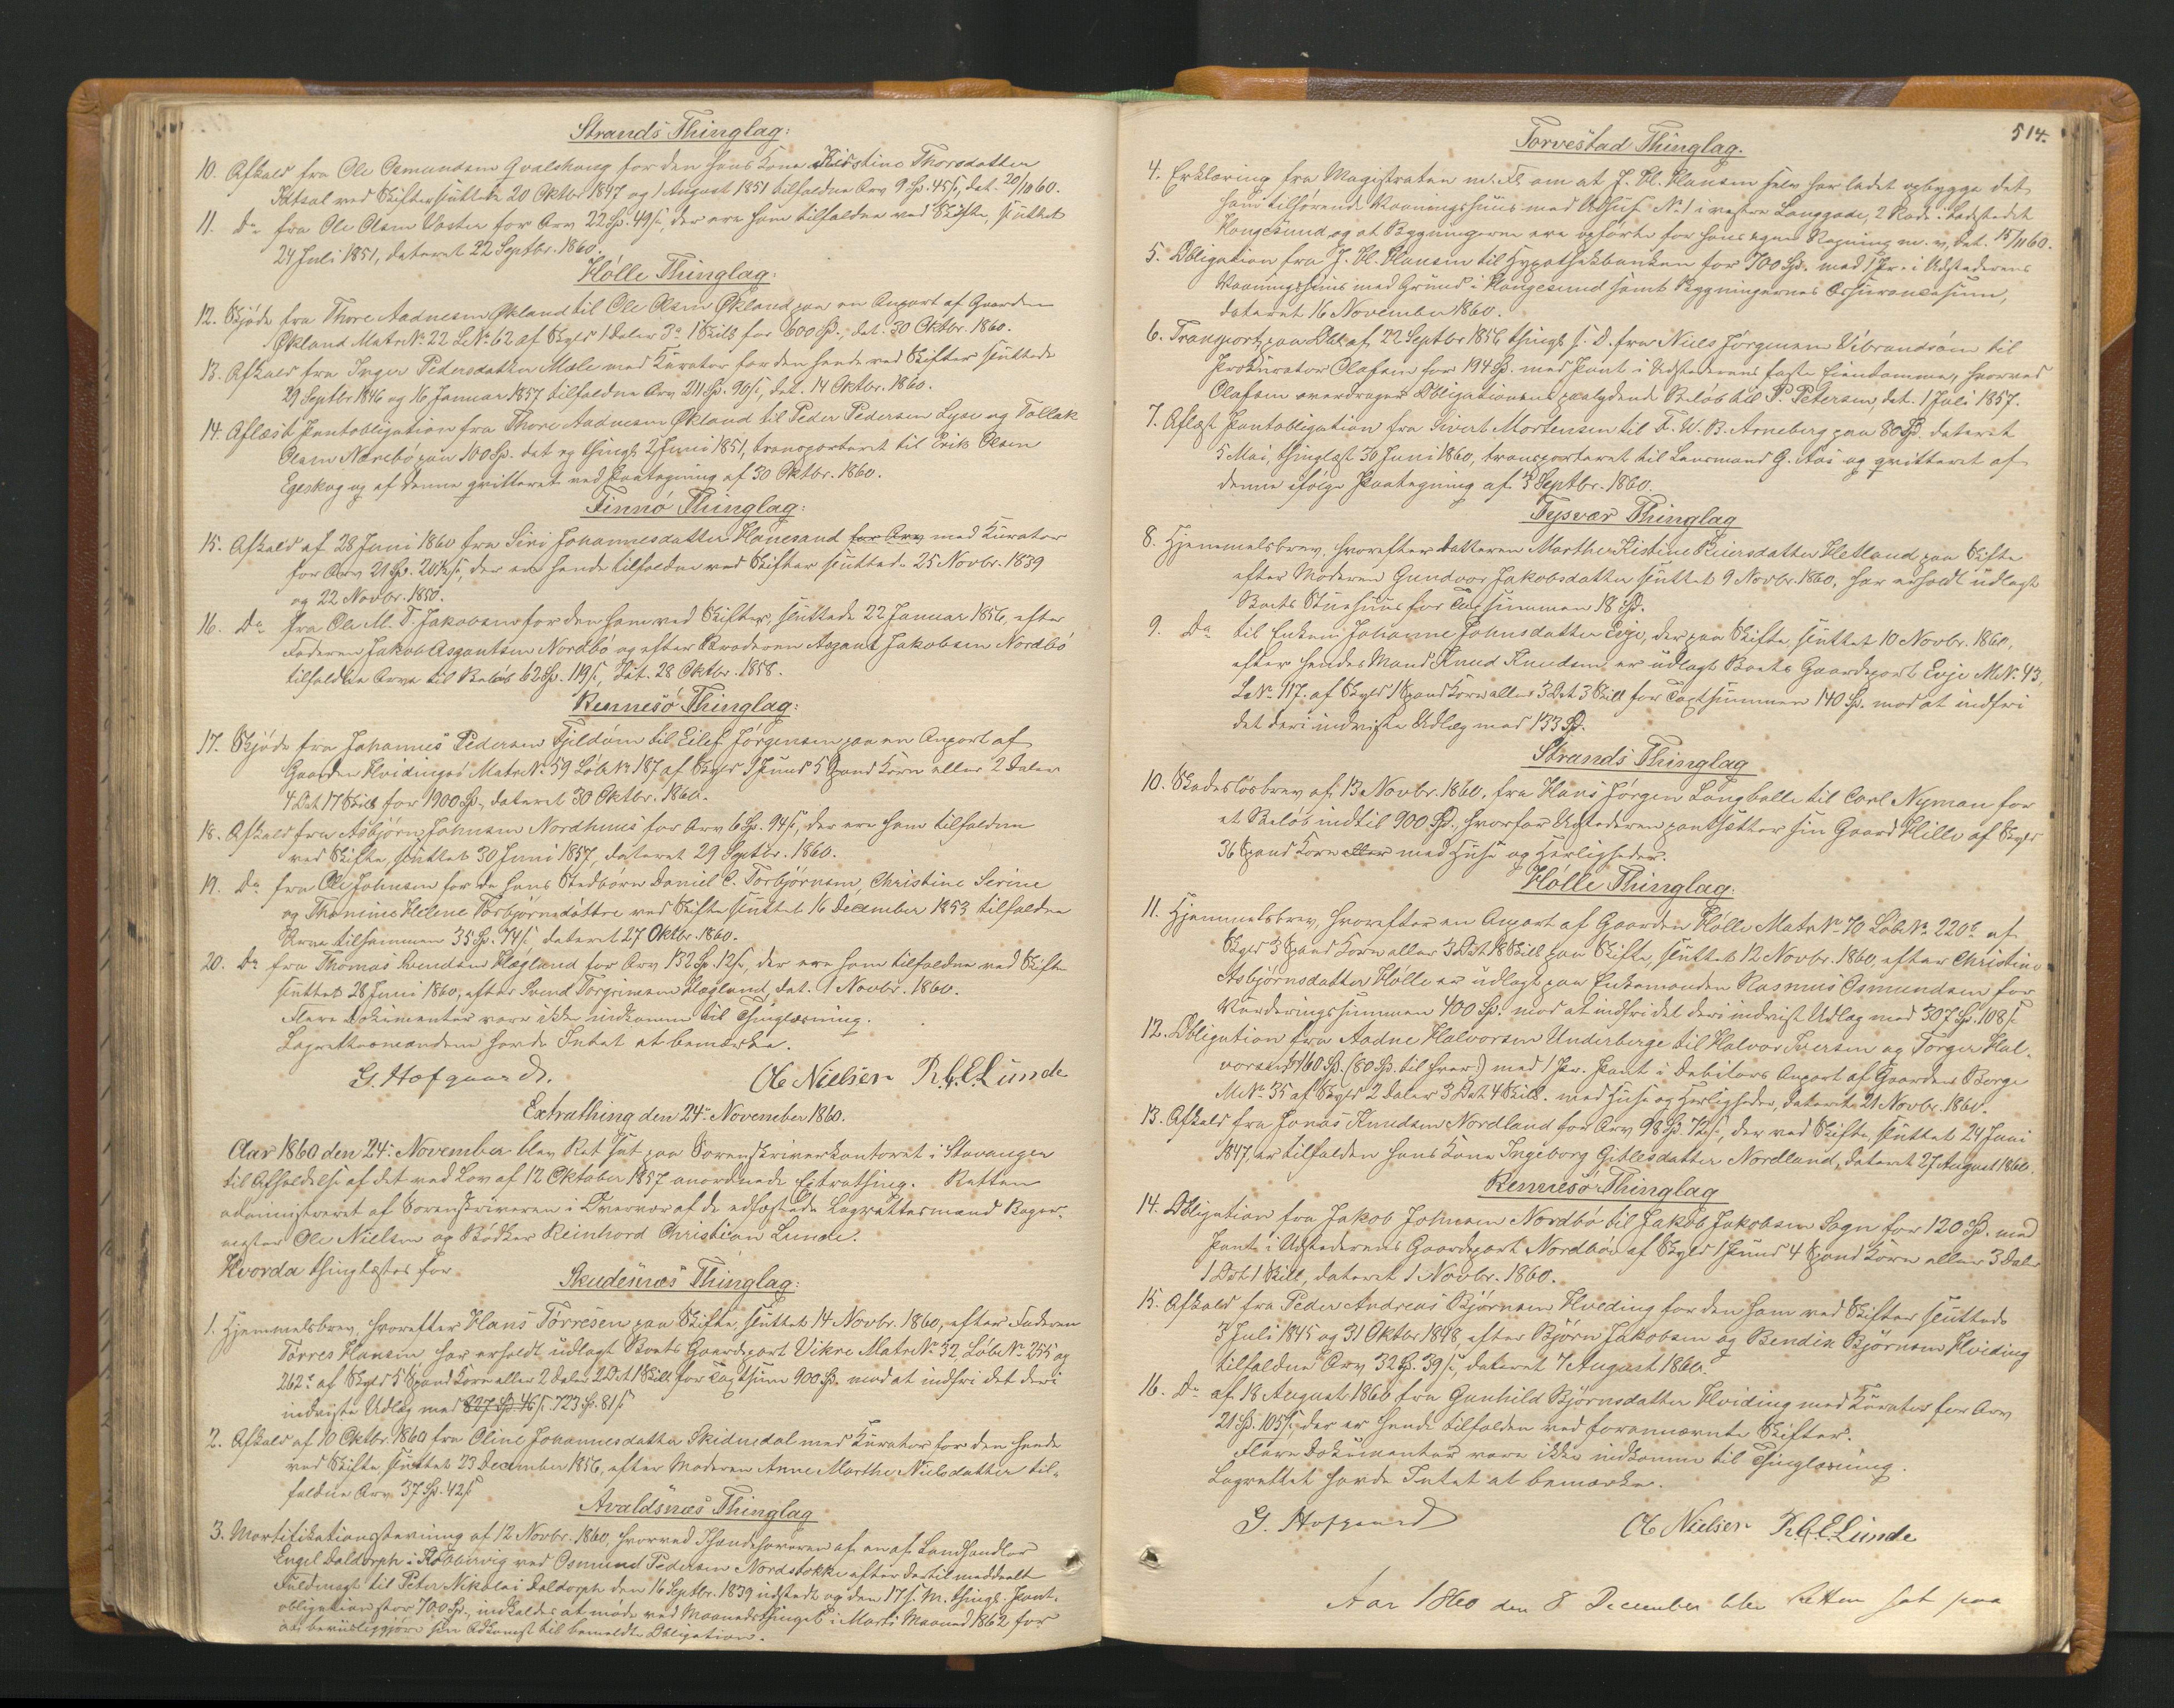 Strands Thinglag:
10. Afkald fra Ole Osmundsen Gvalshaug for den hans Kone Kirstine Thorsdatter
Tilsal ved Skifter sluttede 20 Oktbr 1847 og 1 August 1851 tilfaldne Arv 9 Sp. 45 s, dat. 20/10 60.
11. Do fra Ole Olsen for Arv 22 Sp. 49 s, der ere ham tilfaldne ved Skifte, sluttet
24 Juli 1851, dateret 22 Septbr. 1860.
Hölle Thinglag:
12. Skjöde fra Thore Aadnesen Økland til Ole Olsen Økland paa en Anpart af Gaarden
Økland Matr No 22 L No 62 af Skyld 1 Daler 3 ₰ 1 Skill for 600 Sp., dat. 30 Oktbr. 1860.
13. Afkald fra Inger Pedersdatter Mæle med Kurator for den hende ved Skifter sluttede
29 Septbr 1846 og 16 Januar 1857 tilfaldne Arv 211 Sp. 90 s, dat. 14 Oktbr. 1860.
14. Aflæst Pantobligation fra Thore Aadnesen Økland til Peder Pedersen Lyse og Tollak
Olsen Nærebö paa 100 Sp. dat og thingl. 2 Juni 1851, transporteret til Erik Olsen
Egeskog og af denne qvitteret ved Paategning af 30 Oktbr. 1860.
Finnö Thinglag:
15. Afkald af 28 Juni 1860 fra Siri Johannesdatter Hanesand for Arv med Kurator
for Arv 21 Sp. 20 s, der er hende tilfalden ved Skifter sluttede 25 Novbr. 1839
og 22 Novbr. 1850.
16. Do fra Ole M. T. Jakobsen for den ham ved Skifter, sluttede 22 Januar 1856, efter
Faderen Jakob Asgautsen Nordbö og efter Broderen Asgaut Jakobsen Nordbö
tilfaldne Arve til Belöb 62 Sp. 119 s, dat. 28 Oktbr. 1858.
Rennesö Thinglag:
17. Skjöde fra Johannes Pedersen Fjeldöen til Eilef Jörgensen paa en Anpart af
Gaarden Hvidingsö Matr No 59 Löb No 187 af Skyld 1 Pund 5 Spand Korn eller 2 Daler
4 Ort 17 Skill for 1900 Sp., dateret 30 Oktbr. 1860.
18. Afkald fra Asbjörn Johnsen Nordhuus for Arv 6 Sp. 94 s, der ere ham tilfaldne
ved Skifte, sluttet 30 Juni 1857, dateret 29 Septbr. 1860.
19. Do fra Ole Johnsen for de hans Stedbörn Daniel C. Torbjörnsen, Christine Serine
og Thomine Helene Torbjörnsdöttre ved Skifte sluttet 16 December 1853 tilfaldne
Arve tilsammen 35 Sp. 74 s dateret 27 Oktbr. 1860.
20. Do fra Thomas Svendsen Hægland for Arv 132 Sp. 12 s, der ere ham tilfaldne ved Skifte
sluttet 28 Juni 1860, efter Svend Torgrimsen Hægland, dat. 1 Novbr. 1860.
Flere Dokumenter vare ikke indkomne til Thinglæsning.
Lagrettesmændene havde Intet at bemærke.
G. Hofgaard. Ole Nielsen R.C.E. Lunde
Extrathing den 24de November 1860.
Aar 1860 den 24de November blev Ret sat paa Sorenskriverkontoret i Stavanger
til Afholdelse af det ved Lov af 12 Oktober 1857 anordnede Extrathing. Retten
administreret af Sorenskriveren i Overvær af de edfæstede Lagrettesmænd Bager-
mester Ole Nielsen og Bödker Reinhard Christian Lunde.
Hvorda thinglæstes for
Skudenæs Thinglag:
1. Hjemmelsbrev, hvorefter Hans Tørresen paa Skifte, sluttet 14 Novbr. 1860, efter Faderen
Tørres Hansen har erholdt udlagt Boets Gaardpart Vikre Matr No 52 Löbe No 255 og
262 c af Skyld 5 Spand Korn eller 2 Daler 2 Ort 1 Skill for Taxtsum 900 Sp. mod at indfri det deri
indviste Udlæg med 827 Sp 46 s. 723 Sp. 81 s
2. Afkald af 10 Oktbr. 1860 fra Oline Johannesdatter Skidnedal med Kurator for den hende
ved Skifte, sluttet 23 December 1856, efter Moderen Anne Marthe Nielsdatter til-
faldne Arv 37 Sp. 42 s
Avaldsnæs Thinglag
3. Mortifikationsstevning af 12 Novbr. 1860, hvorved Ihændehaveren af en af Landhandler
Engel Valdorph i Kobbervig ved Osmund Pedersen Nordstokke efter dertil meddeelt
Fuldmagt til Peter Nikolai Valdorph den 16 Septbr. 1839 udstedt og den 17 s. M. thingl. Pant-
obligation stor 700 Sp., indkaldes at möde ved Maanedsthinget i Marts Maaned 1862 for
at beviisliggjöre sin Adkomst til bemeldte Obligation.
514.
Torvestad Thinglag.
4. Erklæring fra Magistraten m. Fl. om at J. H. Hansen selv har ladet opbygge det
ham tilhörende Vaaningshuus med Udhuse No 1 i vestre Langgade, 2 Rode i Ladestedet
Haugesund, og at Bygningerne ere opförte for hans egen Regning m. v, dat. 15/11 60.
5. Obligation fra J. H. Hansen til Hypothekbanken for 700 Sp. med 1 Pr. i Udstederens
Vaaningshuus med Grund i Haugesund samt Bygningernes Assurancesum,
dateret 16 November 1860.
6. Transport paa Obl. af 22 Septbr 1856 thingl. s. D. fra Niels Jörgensen Vibrandsöen til
Prokurator Olafsen for 194 Sp. med Pant i Udstederens faste Eiendomme, hvorved
Olafsen overdrager Obligationens paalydende Belöb til P. Petersen, dat. 1 Juli 1857.
7. Aflæst Pantobligation fra Sivert Mortensen til F. W. B. Arneberg paa 80 Sp. dateret
5 Mai, thinglæst 30 Juni 1860, transporteret til Lensmand G. Aas og qvitteret af
denne ifölge Paategning af 3 Septbr. 1860.
Tysvær Thinglag
8. Hjemmelsbrev, hvorefter Datteren Marthe Kistine Reiersdatter Hetland paa Skifte
efter Moderen Gundvor Jakobsdatter sluttet 9 Novbr. 1860, har erholdt udlagt
Boets Stuehuus for Taxtsummen 18 Sp.
9. Do til Enken Johanne Johnsdatter Evje, der paa Skifte, sluttet 10 Novbr. 1860,
efter hendes Mand Knud Knudsen, er udlagt Boets Gaardepart Evje M No. 43,
L No. 117. af Skyld 1 Spand Korn eller 3 Ort 3 Skill for Taxtsummen 140 Sp. mod at indfri
det deri indviste Udlæg med 133 Sp.
Strands Thinglag
10. Skadeslösbrev af 13 Novbr. 1860, fra Hans Jörgen Langballe til Carl Nyman for
et Belöb indtil 900 Sp. hvorfor Udstederen pantsætter sin Gaard Hille af Skyld
36 Spand Korn eller med Huse og Herligheder.
Hölle Thinglag:
11. Hjemmelsbrev, hvorefter en Anpart af Gaarden Hölle Matr No 70 Löbe No 220 c af
Skyld 3 Spand Korn eller 3 Ort 18 Skill paa Skifte, sluttet 12 Novbr. 1860, efter Christine
Asbjörnsdatter Hölle er udlagt paa Enkemanden Rasmus Osmundsen for
Vurderingssummen 400 Sp. mod at indfri det deri indvist Udlæg med 307 Sp. 108 s
12. Obligation fra Aadne Halvorsen Underberge til Halvor Iversen og Torger Hal-
vorsen 160 Sp. (80 Sp. til hver) med 1 Pr. Pant i Debitors Anpart af Gaarden Berge
M No. 35 af Skyld 2 Daler 3 Ort 4 Skill. med Huse og Herligheder, dateret 21 Novbr. 1860.
13. Afkald fra Jonas Knudsen Nordland for Arv 98 Sp. 72 s, der ved Skifte, sluttet 24 Juni
1847, er tilfalden hans Kone Ingeborg Gitlesdatter Nordland, dateret 27 August 1860.
Rennesö Thinglag
14. Obligation fra Jakob Johnsen Nordbö til Jakob Jakobsen Sogn for 120 Sp. med
Pant i Udstederens Gaardpart Nordbö af Skyld 1 Pund 4 Spand Korn eller 3 Daler
1 Ort 1 Skill, dateret 1 Novbr. 1860.
15. Afkald fra Peder Andreas Björnsen Hviding for den ham ved Skifter sluttede
3 Juli 1845 og 31 Oktbr 1848 efter Björn Jakobsen og Bendik Björnsen Hviding
tilfaldne Arv 32 Sp. 39 s, dateret 7 August 1860.
16. Do af 18 August 1860 fra Gunhild Björnsdatter Hviding med Kurator for Arv
21 Sp. 105 s, der er hende tilfalden ved forannævnte Skifter.
Flere Dokumenter vare ikke indkomne til Thinglæsning.
Lagrettet havde Intet at bemærke.
G. Hofgaard Ole Nielsen R.C.E. Lunde
Aar 1860 den 8 December blev Retten sat paa